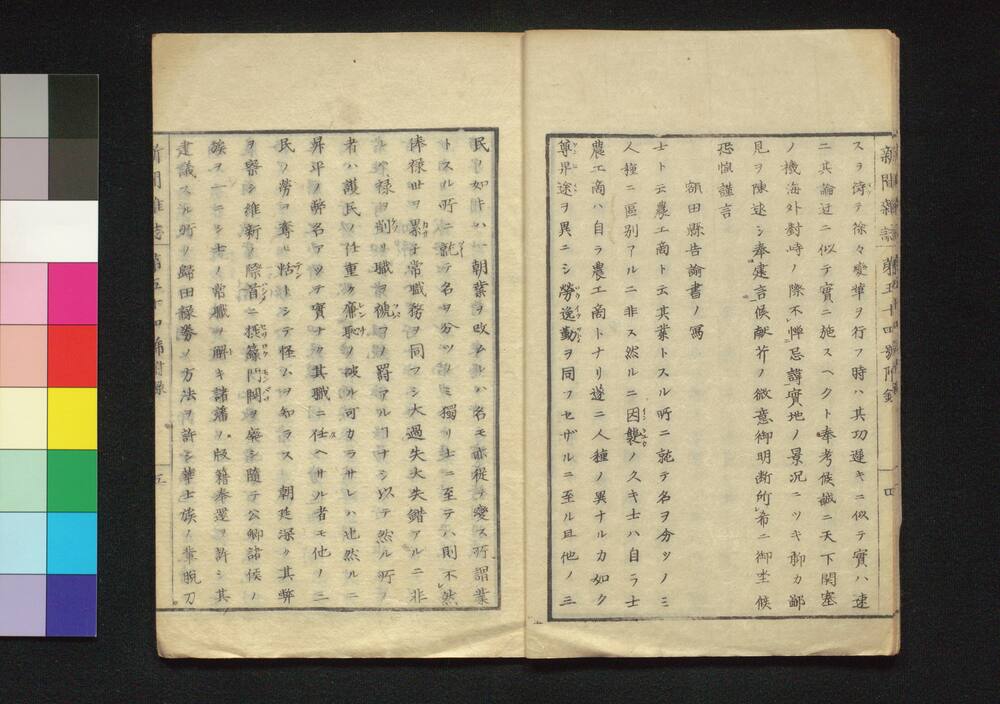 新聞雑誌 第五十四號附録 四
スヲ濟テ徐々變革ヲ行フ時ハ其功遅キニ似テ實ハ速
ニ其論迂ニ似テ實ニ施スヘクト奉考候誠ニ天下開塞
ノ機海外対峙ノ際不憚忌諱實地ノ景況ニツキ聊カ鄙
見ヲ陳述シ奉建言候献芹ノ微意御明断所希ニ御坐候
恐惶謹言
額田縣告諭書ノ寫
士ト云農工商ト云其業トスル所ニ就テ名ヲ分ツノミ
人種ニ區別アルニ非ス然ルニ因襲ノ久キ士ハ自ラ士
農工商ハ自ラ農工商トナリ遂ニ人種ノ異ナルカ如ク
尊卑途ヲ異ニシ勞逸勤ヲ同フセザルニ至ル且他ノ三
民ノ如キハ朝業ヲ改ムレハ名モ亦從テ變ス所謂業
トスル所ニ就テ名ヲ分ツノミ獨リ士ニ至テハ則不然
俸禄世ヲ累子常職務ヲ同フシ大過失大失錯アルニ非
レハ禄ヲ削リ職ヲ褫フノ罰アルヿナシ以テ然ル所ノ
者ハ護民ノ任重ク廉恥ノ破ル可カラサレハ也然ルニ
昇平ノ弊名アツテ實ナク其職ニ任ヘサル者モ他ノ三
民ノ勞ヲ奪ル恬トシテ怪ムヲ知ラス 朝廷深ク其弊
ヲ察シ維新ノ際首ニ撰簶門閥ヲ廃シ隨テ公卿諸侯ノ
族ヲ一ニシ士ノ常職ヲ解キ諸藩ノ版籍奉還ヲ許シ其
建議スル所ノ歸田禄券ノ方法ヲ許シ華士族ノ輩脱刀
新聞雑誌 第五十四號附録 五